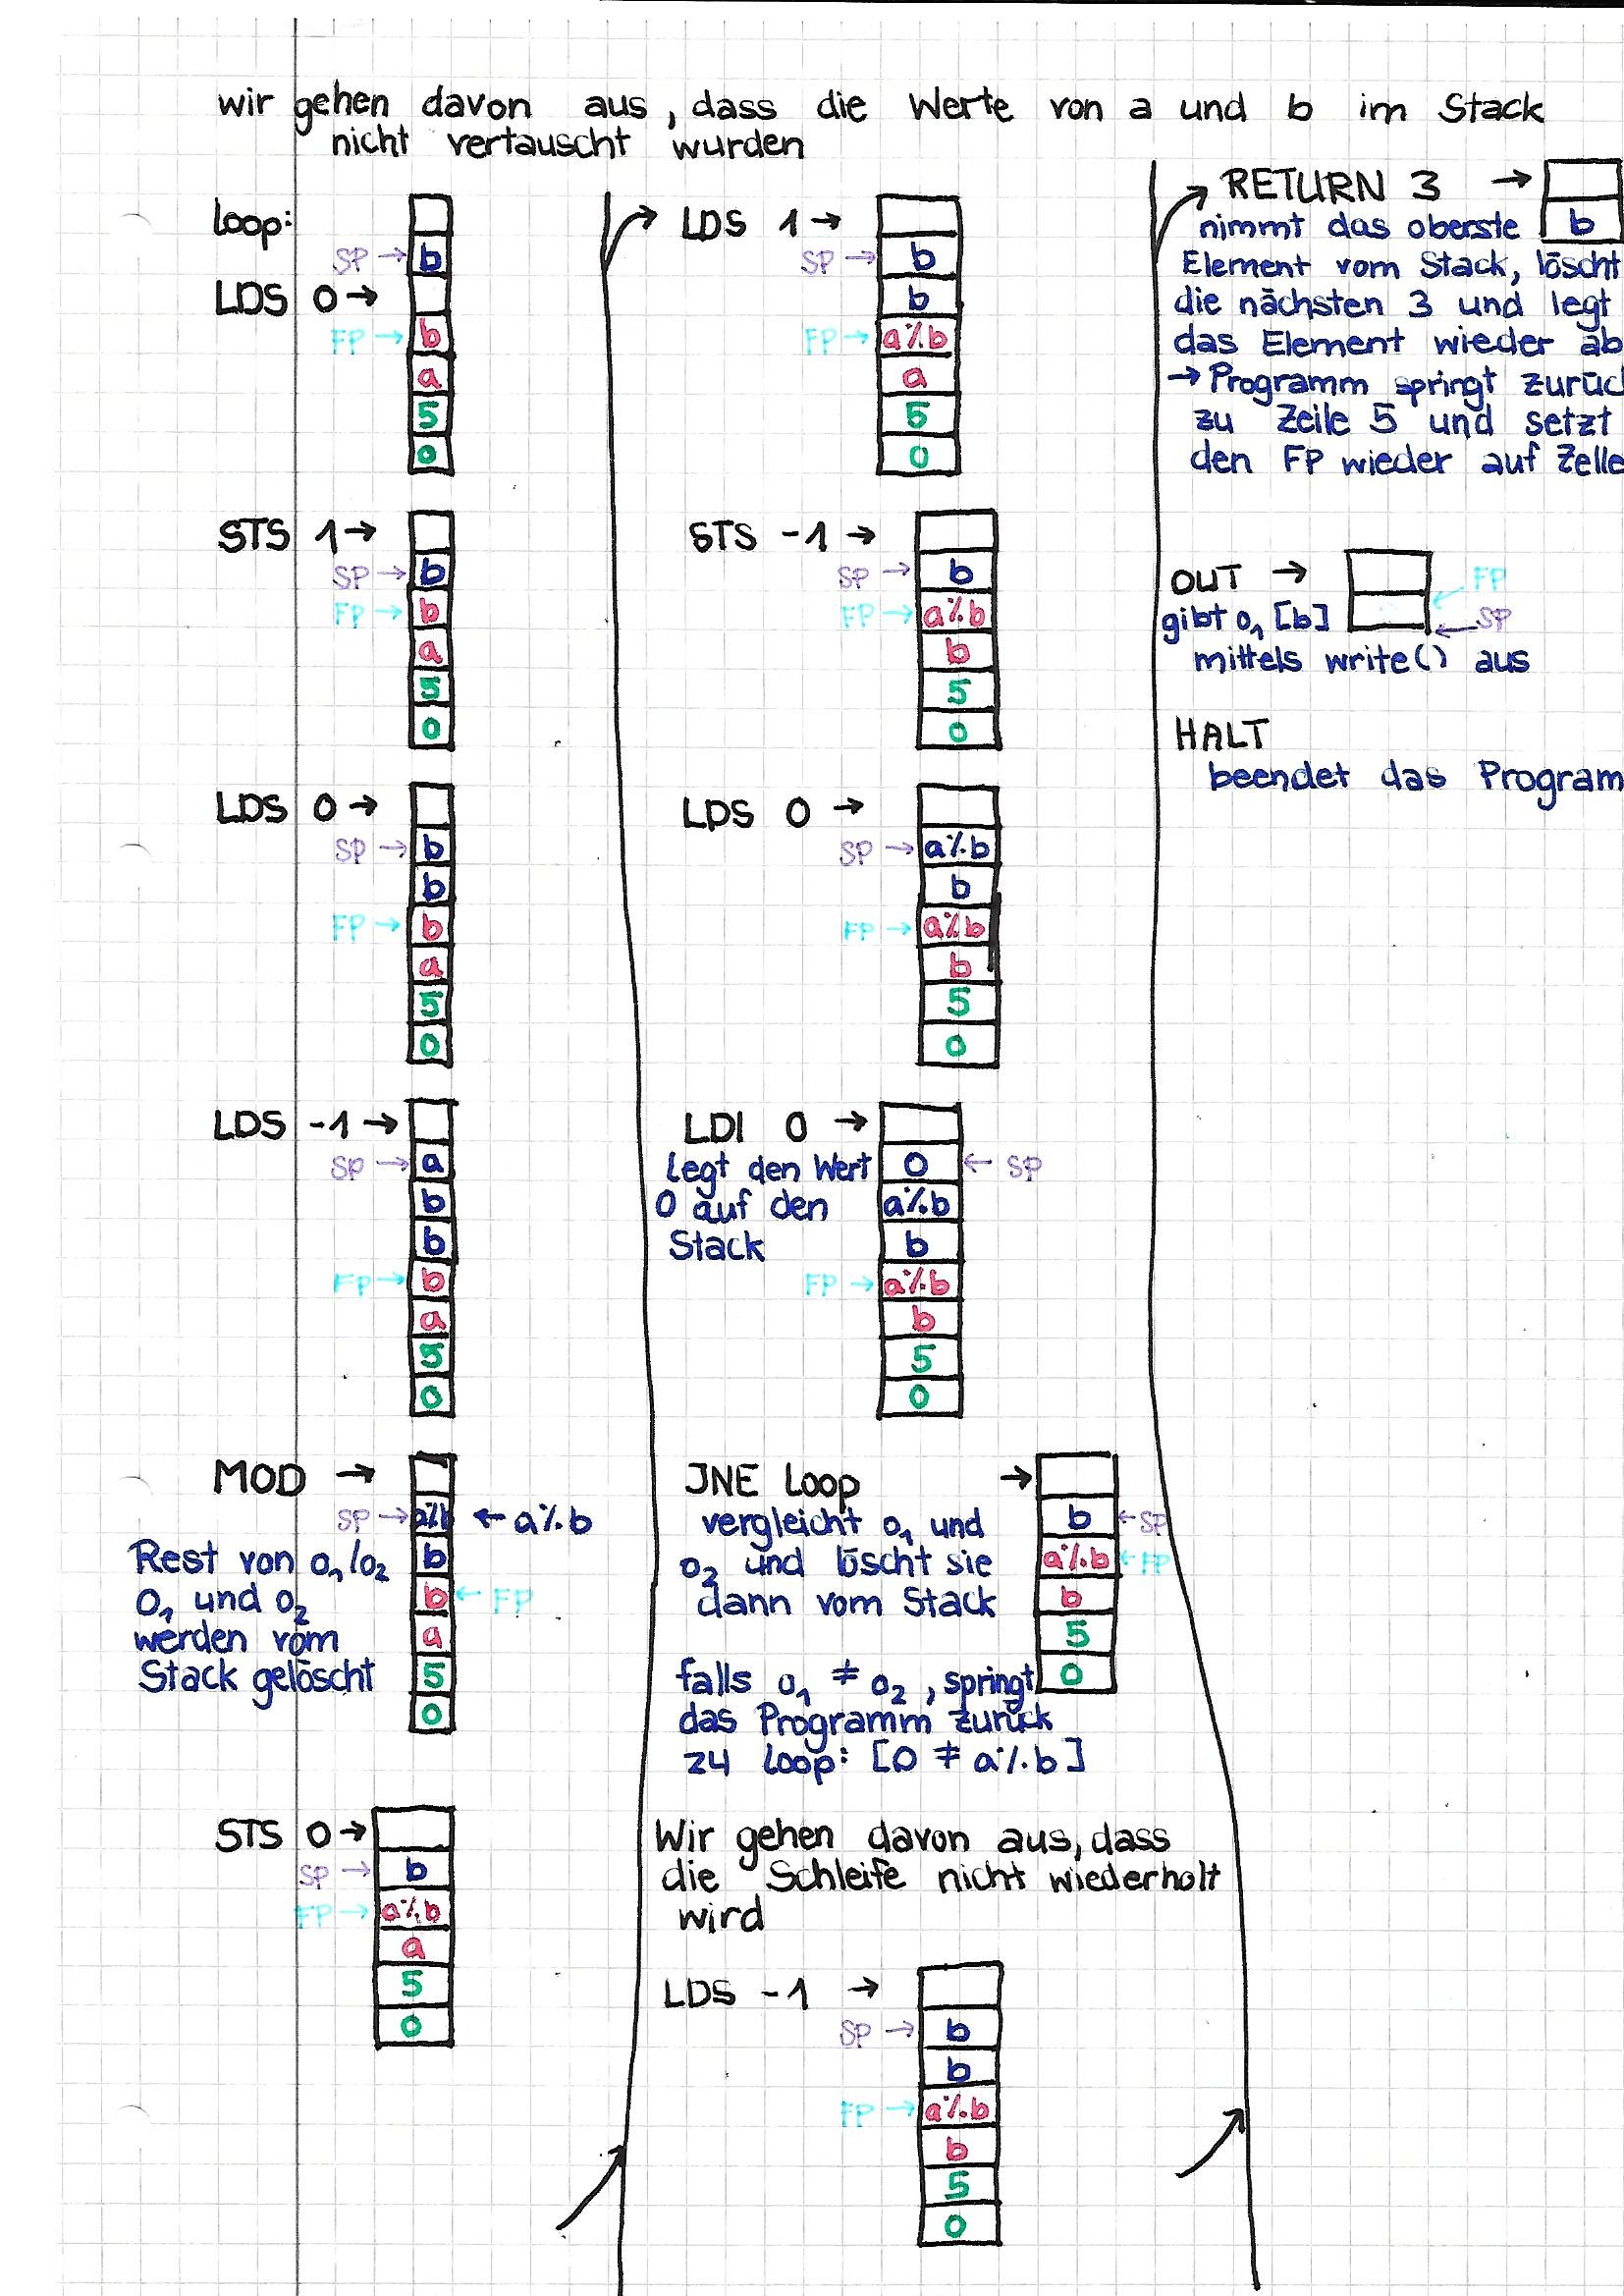 wir gehen davon aus, dass die Werte von a und b im Stack
nicht vertauscht wurden
loop:
SP → b
LDS 0 →
FP → b
a
5
0
STS 1 →
SP → b
FP → b
a
5
0
LDS 0 →
SP → b
b
FP → b
a
5
0
LDS -1 →
SP → a
b
b
FP → b
a
5
0
MOD →
SP → a%b ← a%b
Rest von o₁/o₂ b
o₁ und o₂ b ← FP
werden vom a
Stack gelöscht 5
0
STS 0 →
SP → b
FP → a%b
a
5
0
LDS 1 →
SP → b
b
FP → a%b
a
5
0
STS -1 →
SP → b
FP → a%b
b
5
0
LDS 0 →
SP → a%b
b
FP → a%b
b
5
0
LDI 0 →
legt den Wert 0 ← SP
0 auf den a%b
Stack b
FP → a%b
b
5
0
JNE loop →
vergleicht o₁ und b ← SP
o₂ und löscht sie a%b ← FP
dann vom Stack b
5
falls o₁ ≠ o₂, springt 0
das Programm zurück
zu loop: [0 ≠ a%b]
Wir gehen davon aus, dass
die Schleife nicht wiederholt
wird
LDS -1 →
SP → b
b
FP → a%b
b
5
0
RETURN 3 →
nimmt das oberste b
Element vom Stack, löscht
die nächsten 3 und legt
das Element wieder ab
→ Programm springt zurüc
zu Zeile 5 und setzt
den FP wieder auf Zelle
OUT → FP
gibt o₁ [b] SP
mittels write() aus
HALT
beendet das Program